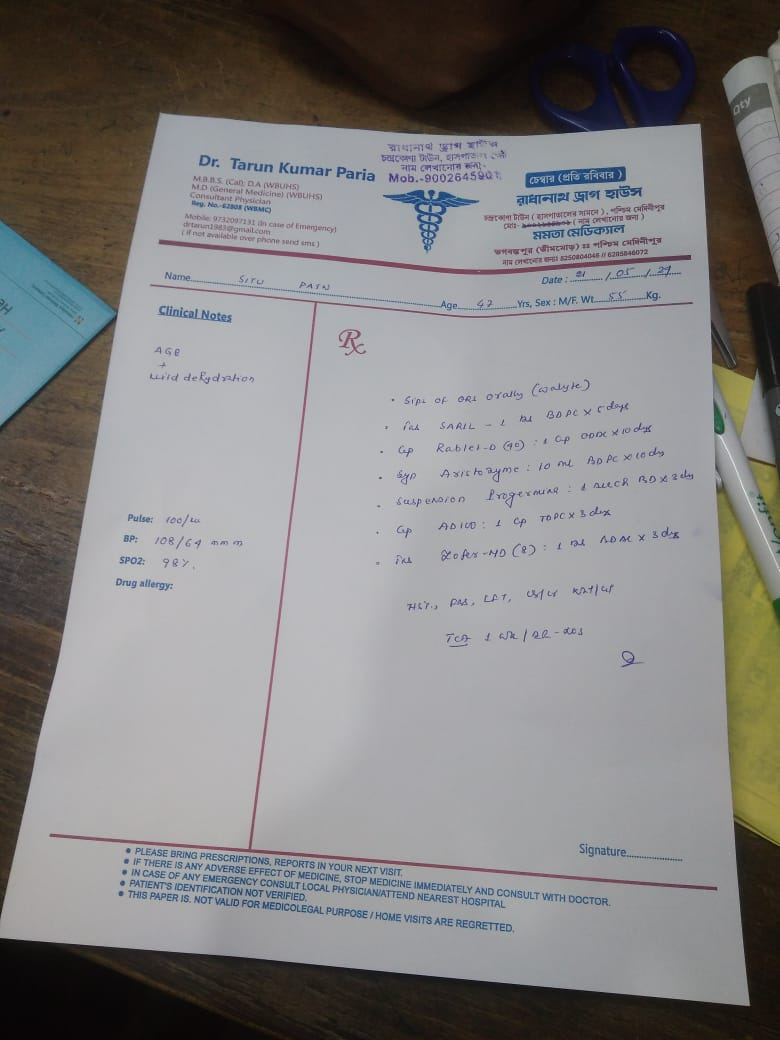 Dr. Tarun Kumar Paria
M.B.B.S (Cal); D.A (WBUHS)
M.D (General Medicine) (WBUHS)
Consultant Physician
Reg. No.-62808 (WBMC)
Mobile: 9732097131 (In case of Emergency)
drtarun1983@gmail.com
( if not available over phone send sms )
রাধানাথ ড্রাগ হাউস
চন্দ্রকোণা টাউন, হাসপাতাল
নাম লেখানোর জন্য-
Mob.-9002645901
চেম্বার (প্রতি রবিবার)
রাধানাথ ড্রাগ হাউস
চন্দ্রকোণা টাউন ( হাসপাতালের সামনে ), পশ্চিম মেদিনীপুর
মোঃ ( নাম লেখানোর জন্য )
মমতা মেডিক্যাল
ভগবন্তপুর (ভীমমোড়) :: পশ্চিম মেদিনীপুর
নাম লেখানোর জন্যঃ 6250804046 // 6295846072
Name SITU PAIN
Date : 21 / 05 /
Age 47 Yrs, Sex : M/F. Wt. 55 Kg.
Clinical Notes
Rx
AGE
+
Mild dehydration
• Sips of ORS orally (Walyte)
SARIL - 1 BDPC x 5 days
• Cap Rablet-D (40) : 1 Cap ODAC x 10 days
• Syp Aristozyme : 10 ml BDPC x 10 days
• Suspension Progermina : 1 BD x 3 days
• Cap : 1 Cap TDPC x 3 days
Zofer-MD (8) : 1 x 3 days
Pulse: 100/
BP: 108/64
SPO2: 98%.
Drug allergy:
LFT,
1 wk /
Signature
• PLEASE BRING PRESCRIPTIONS, REPORTS IN YOUR NEXT VISIT.
• IF THERE IS ANY ADVERSE EFFECT OF MEDICINE, STOP MEDICINE IMMEDIATELY AND CONSULT WITH DOCTOR.
• IN CASE OF ANY EMERGENCY CONSULT LOCAL PHYSICIAN/ATTEND NEAREST HOSPITAL
• PATIENT'S IDENTIFICATION NOT VERIFIED.
• THIS PAPER IS. NOT VALID FOR MEDICOLEGAL PURPOSE / HOME VISITS ARE REGRETTED.
Qty